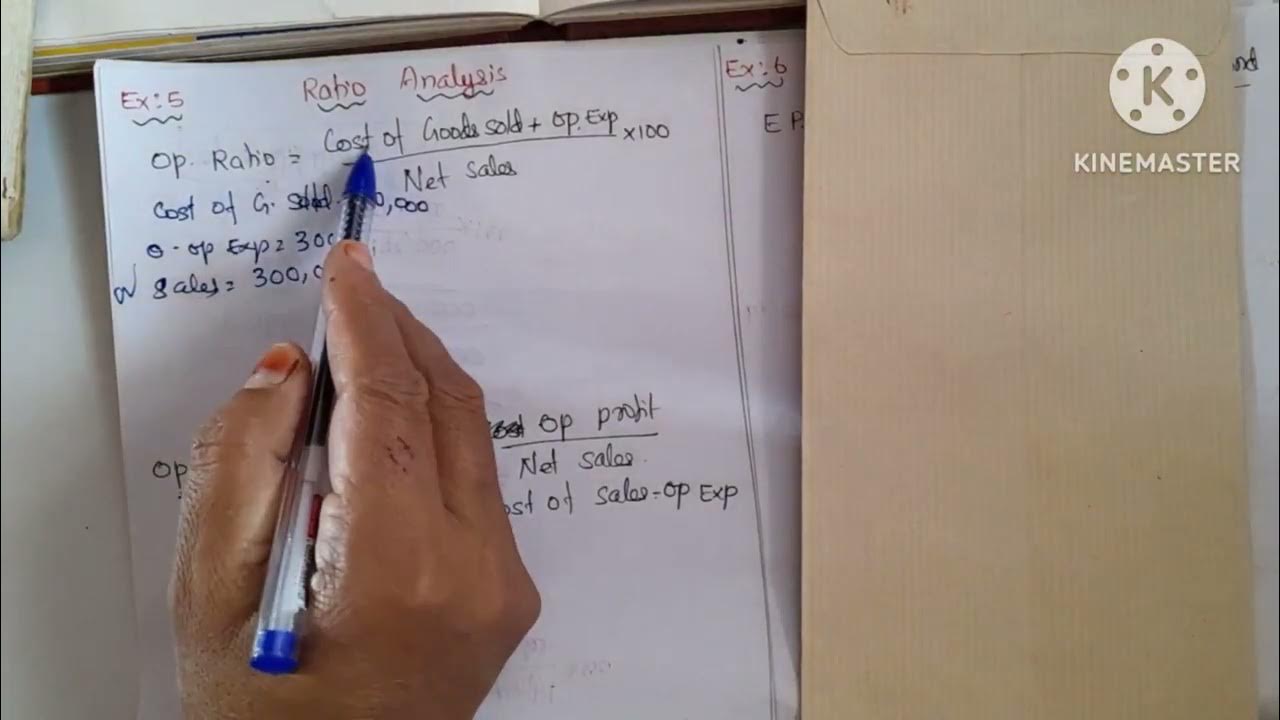 Ex: 5
Ratio Analysis
Op. Ratio = Cost of Goods sold + Op. Exp ×100
Net Sales
Cost of G. Sold 0,000
op Exp = 300
N Sales = 300,0
Op
Op profit
Net Sales.
ost of Sales - Op Exp
Ex: 6
E P.
K
KINEMASTER